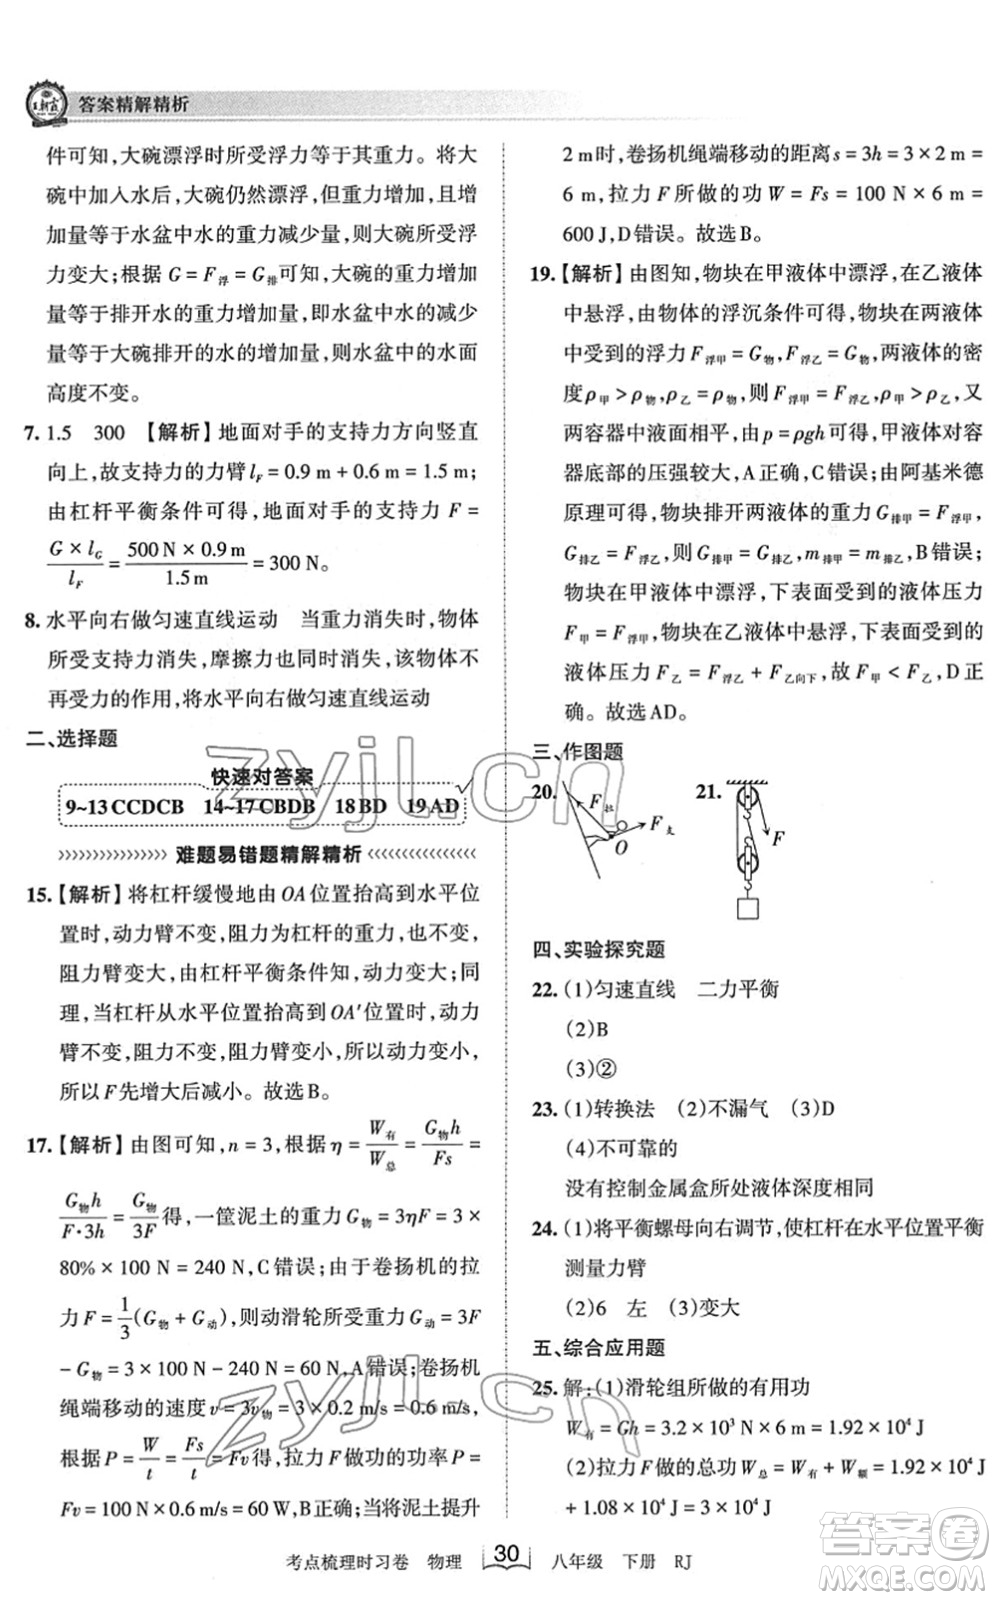 王朝霞
答案精解精析
件可知,大碗漂浮时所受浮力等于其重力。将大
碗中加入水后,大碗仍然漂浮,但重力增加,且增
加量等于水盆中水的重力减少量,大碗所受浮
力变大;根据 G = F浮 = G排可知,大碗的重力增加
量等于排开水的重力增加量,即水盆中水的减少
量等于大碗排开的水的增加量,则水盆中的水面
高度不变。
7. 1.5 300 【解析】地面对手的支持力方向竖直
向上,故支持力的力臂 lF = 0.9 m + 0.6 m = 1.5 m;
由杠杆平衡条件可得,地面对手的支持力 F =
G × lG / lF = 500 N × 0.9 m / 1.5 m = 300 N。
8. 水平向右做匀速直线运动 当重力消失时,物体
所受支持力消失,摩擦力也同时消失,该物体不
再受力的作用,将水平向右做匀速直线运动
二、选择题
快速对答案
9~13 CCDCB 14~17 CBDB 18 BD 19 AD
难题易错题精解精析
15. 【解析】将杠杆缓慢地由 OA 位置抬高到水平位
置时,动力臂不变,阻力为杠杆的重力,也不变,
阻力臂变大,由杠杆平衡条件知,动力变大;同
理,当杠杆从水平位置抬高到 OA′位置时,动力
臂不变,阻力不变,阻力臂变小,则动力变小,
所以 F 先增大后减小。故选 B。
17. 【解析】由图可知,n = 3,根据 η = W有 / W总 = G物h / Fs =
G物h / F·3h = G物 / 3F 得,一筐泥土的重力 G物 = 3ηF = 3 ×
80% × 100 N = 240 N,C 错误;由于卷扬机的拉
力 F = 1/3 (G物 + G动),则动滑轮所受重力 G动 = 3F
- G物 = 3 × 100 N - 240 N = 60 N,A 错误;卷扬机
绳端移动的速度 v = 3v物 = 3 × 0.2 m/s = 0.6 m/s,
根据 P = W/t = Fs/t = Fv 得,拉力 F 做功的功率 P =
Fv = 100 N × 0.6 m/s = 60 W,B 正确;当将泥土提升
2 m 时,卷扬机绳端移动的距离 s = 3h = 3 × 2 m =
6 m,拉力 F 所做的功 W = Fs = 100 N × 6 m =
600 J,D 错误。故选 B。
19. 【解析】由图知,物块在甲液体中漂浮,在乙液体
中悬浮,由物体的浮沉条件可得,物块在两液体
中受到的浮力 F浮甲 = G物,F浮乙 = G物,两液体的密
度 ρ甲 > ρ物,ρ乙 = ρ物,则 F浮甲 = F浮乙,ρ甲 > ρ乙,又
两容器中液面相平,由 p = ρgh 可得,甲液体对容
器底部的压强较大,A 正确,C 错误;由阿基米德
原理可得,物块排开两液体的重力 G排甲 = F浮甲,
G排乙 = F浮乙,则 G排甲 = G排乙,m排甲 = m排乙,B 错误;
物块在甲液体中漂浮,下表面受到的液体压力
F甲 = F浮甲,物块在乙液体中悬浮,下表面受到的
液体压力 F乙 = F浮乙 + F乙向下,故 F甲 < F乙,D 正
确。故选 AD。
三、作图题
20. F拉 F支 O 21. F
四、实验探究题
22. (1)匀速直线 二力平衡
(2)B
(3)②
23. (1)转换法 (2)不漏气 (3)D
(4)不可靠的
没有控制金属盒所处液体深度相同
24. (1)将平衡螺母向右调节,使杠杆在水平位置平衡
测量力臂
(2)6 左 (3)变大
五、综合应用题
25. 解:(1)滑轮组所做的有用功
W有 = Gh = 3.2 × 10³ N × 6 m = 1.92 × 10⁴ J
(2)拉力 F 做的总功 W总 = W有 + W额 = 1.92 × 10⁴ J
+ 1.08 × 10⁴ J = 3 × 10⁴ J
考点梳理时习卷 物理 30 八年级 下册 RJ
zyjl.cn
zyjl.cn
答案圈
MXQE.COM